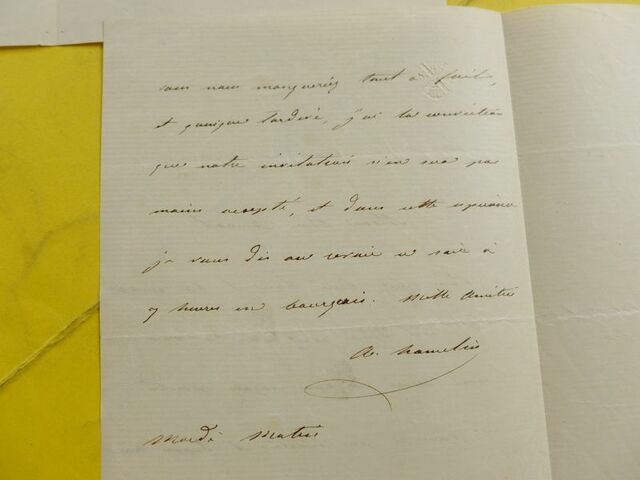 vous nous manqueriez tout à fait,
et quoique tardive, j'ai la conviction
que notre invitation n'en sera pas
moins accepté, et dans cette espérance
je vous dis au revoir ce soir à
7 heures en bourgeois. Mille Amitiés
A. Hamelin
Mardi Matin